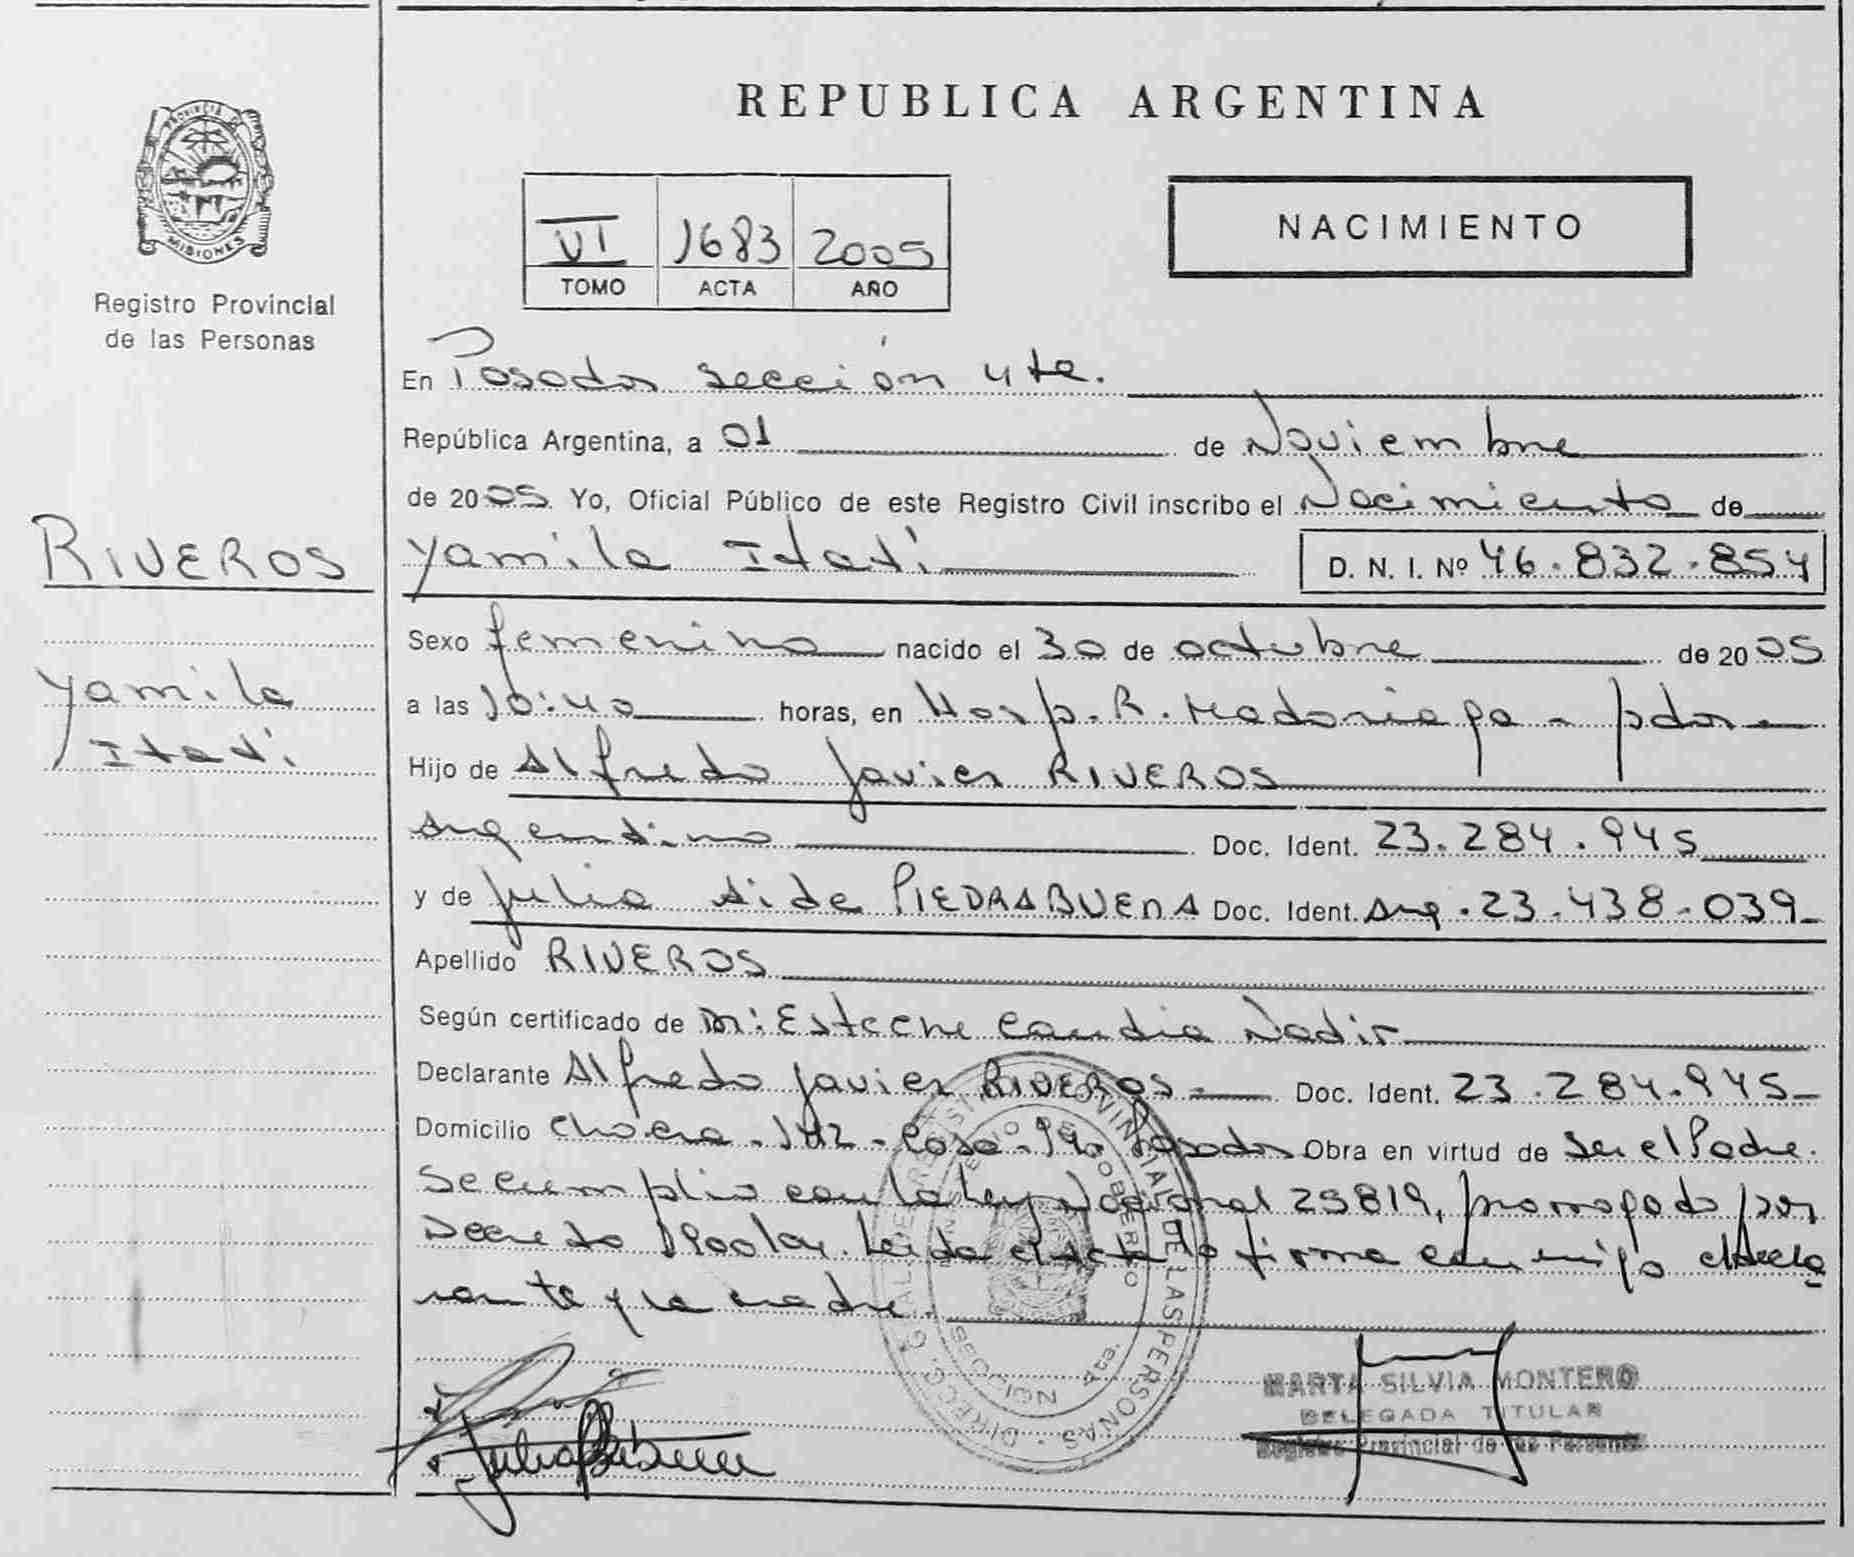 PROVINCIA DE
MISIONES
Registro Provincial
de las Personas
RIVEROS
Yamila
Itatí
REPUBLICA ARGENTINA
VI 1683 2005
TOMO ACTA AÑO
NACIMIENTO
En Posadas sección 4ta.
República Argentina, a 01 de Noviembre
de 2005 Yo, Oficial Público de este Registro Civil inscribo el Nacimiento de
Yamila Itatí D. N. I. Nº 46.832.854
Sexo femenino nacido el 30 de octubre de 2005
a las 10:40 horas, en Hosp. R. Madariaga - pdas -
Hijo de Alfredo Javier RIVEROS
argentino Doc. Ident. 23.284.945
y de Julia Aide PIEDRABUENA Doc. Ident. Arg. 23.438.039-
Apellido RIVEROS
Según certificado de Nadir
Declarante Alfredo Javier RIVEROS Doc. Ident. 23.284.945-
Domicilio Casa Posadas Obra en virtud de Ser el Padre.
Se cumplio con la Ley Nacional 25819, prorrogado por
Decreto Leida el acta la firma conmigo el decla
rante y la madre.
MARTA SILVIA MONTERO
DELEGADA TITULAR
Registro Provincial de las Personas